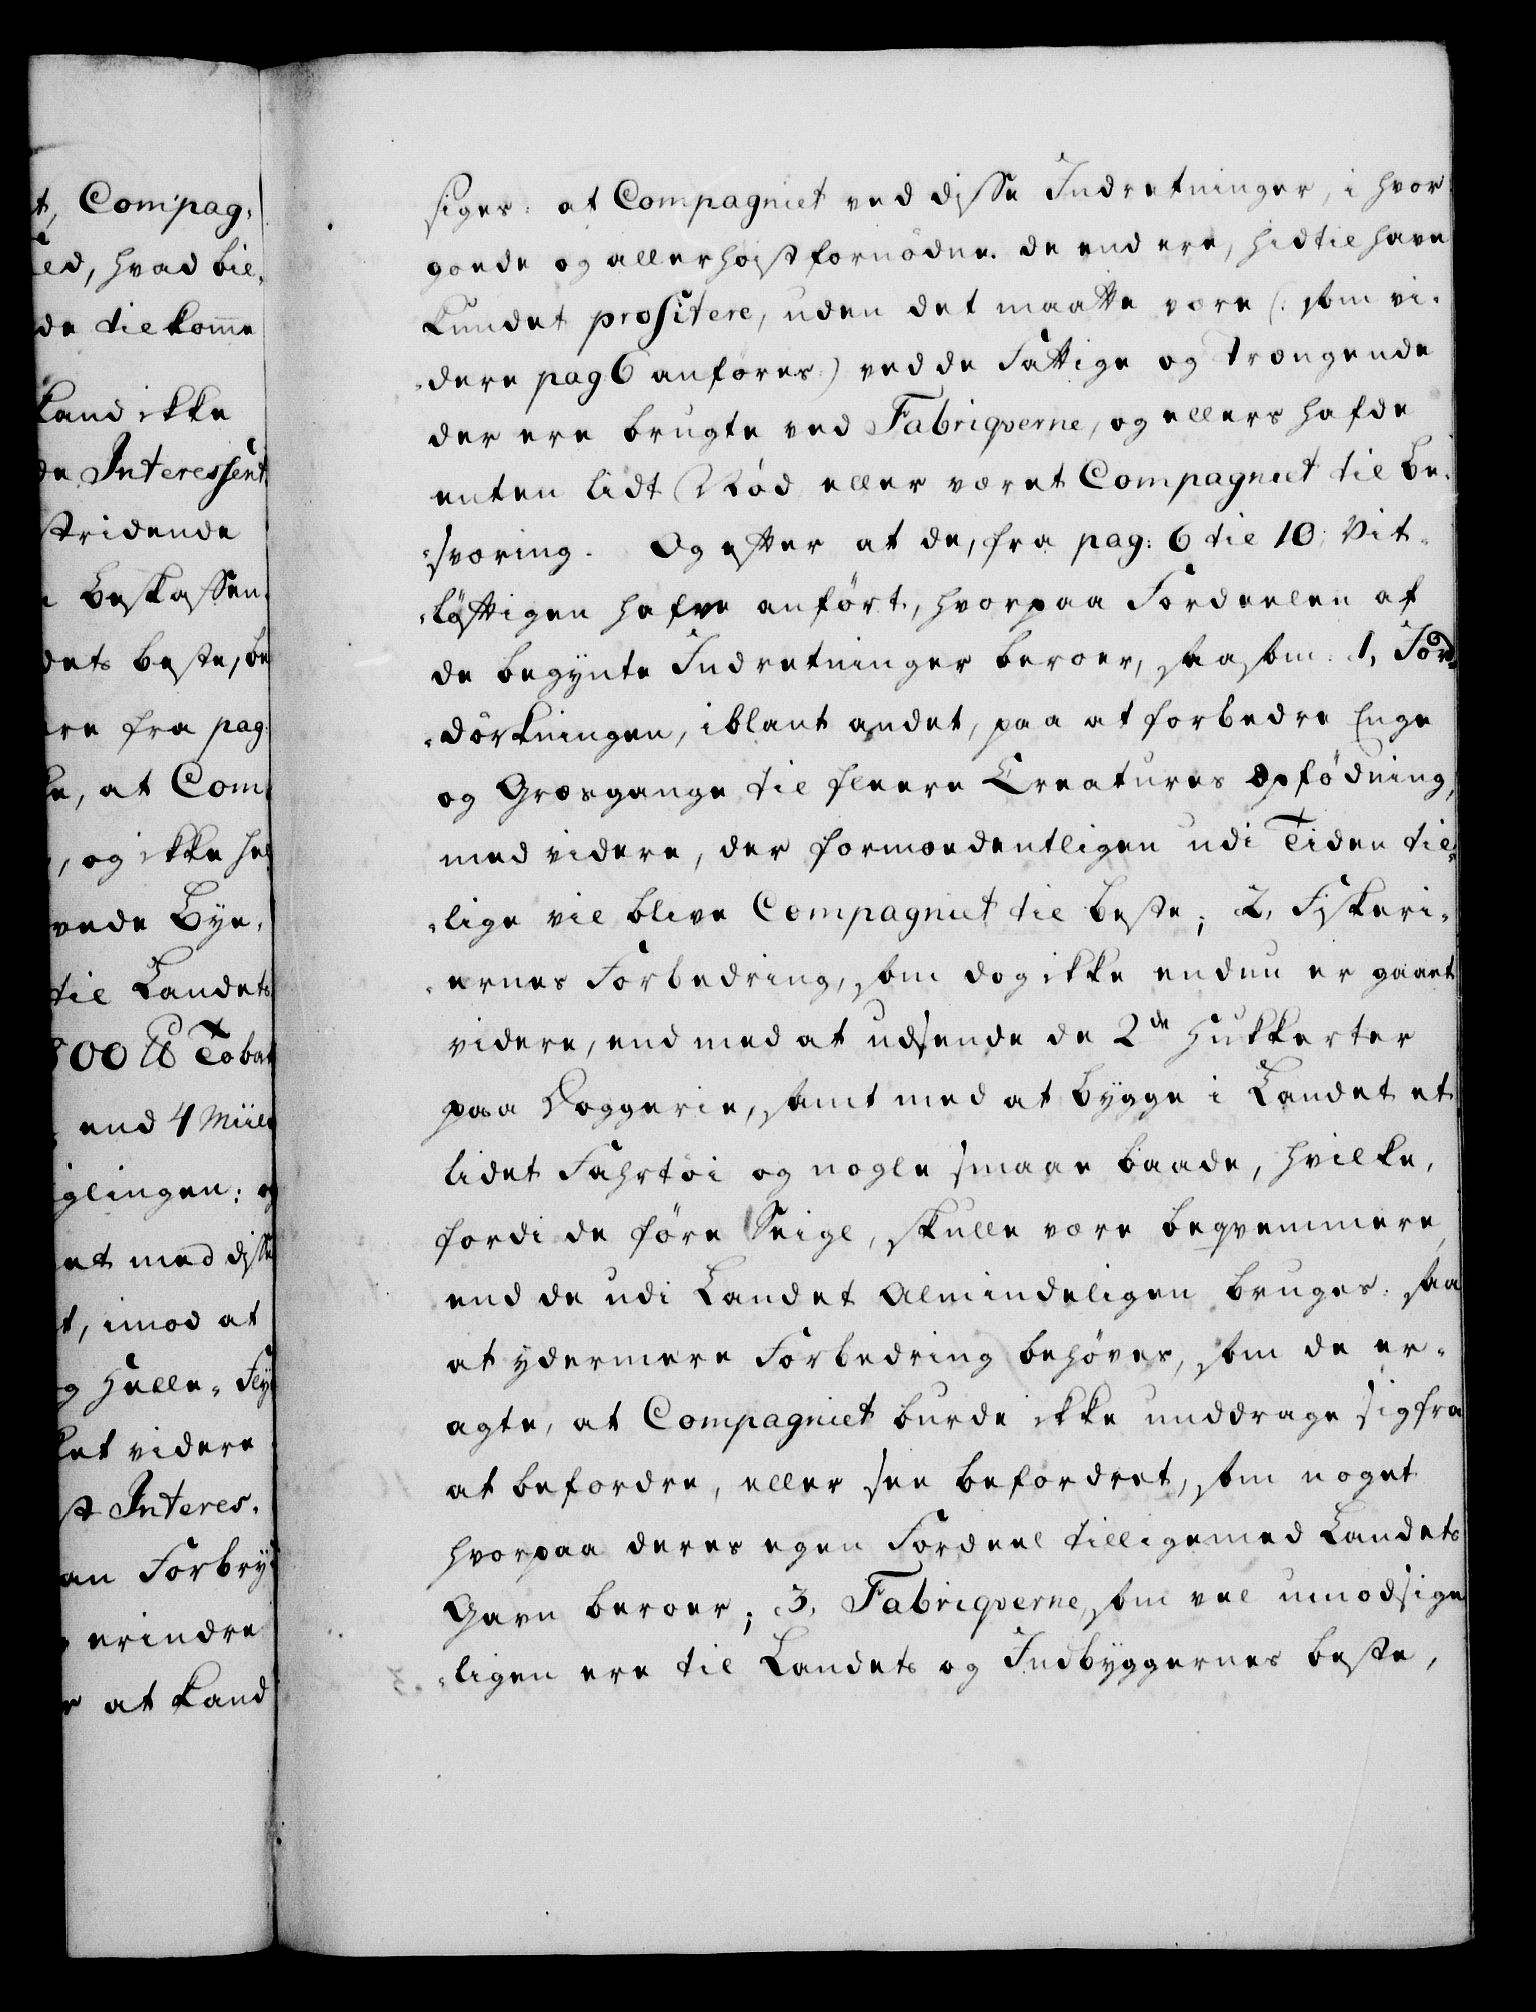 t, Compag-
led, hvad bil-
de til komme
kand ikke
de Interessent-
stridende
Beskaffen-
dets beste, be
ere fra pag:
ke, at Com
, og ikke hel
vede Bye-
til Landets
800 ℔ Tobak
end 4 Miile
glingen; og
et med disse
t, imod at
g Helle-Fly
ket videre
st Interes-
an Forbry
erindre
r at kand
siges: at Compagniet ved disse Indretninger, i hvor
goede og allerhøist fornødne de end ere, hidtil have
kundet profitere, uden det maatte være (: som vi-
-dere pag 6 anføres:) ved de Fattige og Trængende
der ere brugte ved Fabriqverne, og ellers hafde
enten lidt Nød eller været Compagniet til be-
-sværing. Og efter at de, fra pag: 6 til 10, vit-
-løftigen hafve anført, hvorpaa Fordeelen af
de begynte Indretninger beroer, saasom: 1, Jord-
-dørkningen, iblant andet, paa at forbedre Enge
og Græsgange til fleere Creatures Opfødning,
med videre, der formoedentligen udi Tiden til-
-lige vil blive Compagniet til beste; 2, Fiskeri-
-ernes Forbedring, som dog ikke endnu er gaaet
videre, end med at udsende de 2de Hukkerter
paa Doggerie, samt med at bygge i Landet et
lidet Fahrtøi og nogle smaae baade, hvilke,
fordi de føre Seigl, skulle være beqvemmere,
end de udi Landet Almindeligen bruges: saa
at ydermere Forbedring behøves, som de er-
agte, at Compagniet burde ikke unddrage sig fra
at befordre, eller see befordret, som noget
hvorpaa deres egen Fordeel tilligemed Landets
Gavn beroer; 3, Fabriqverne, som vel umodsige
-ligen ere til Landets og Indbyggernes beste,